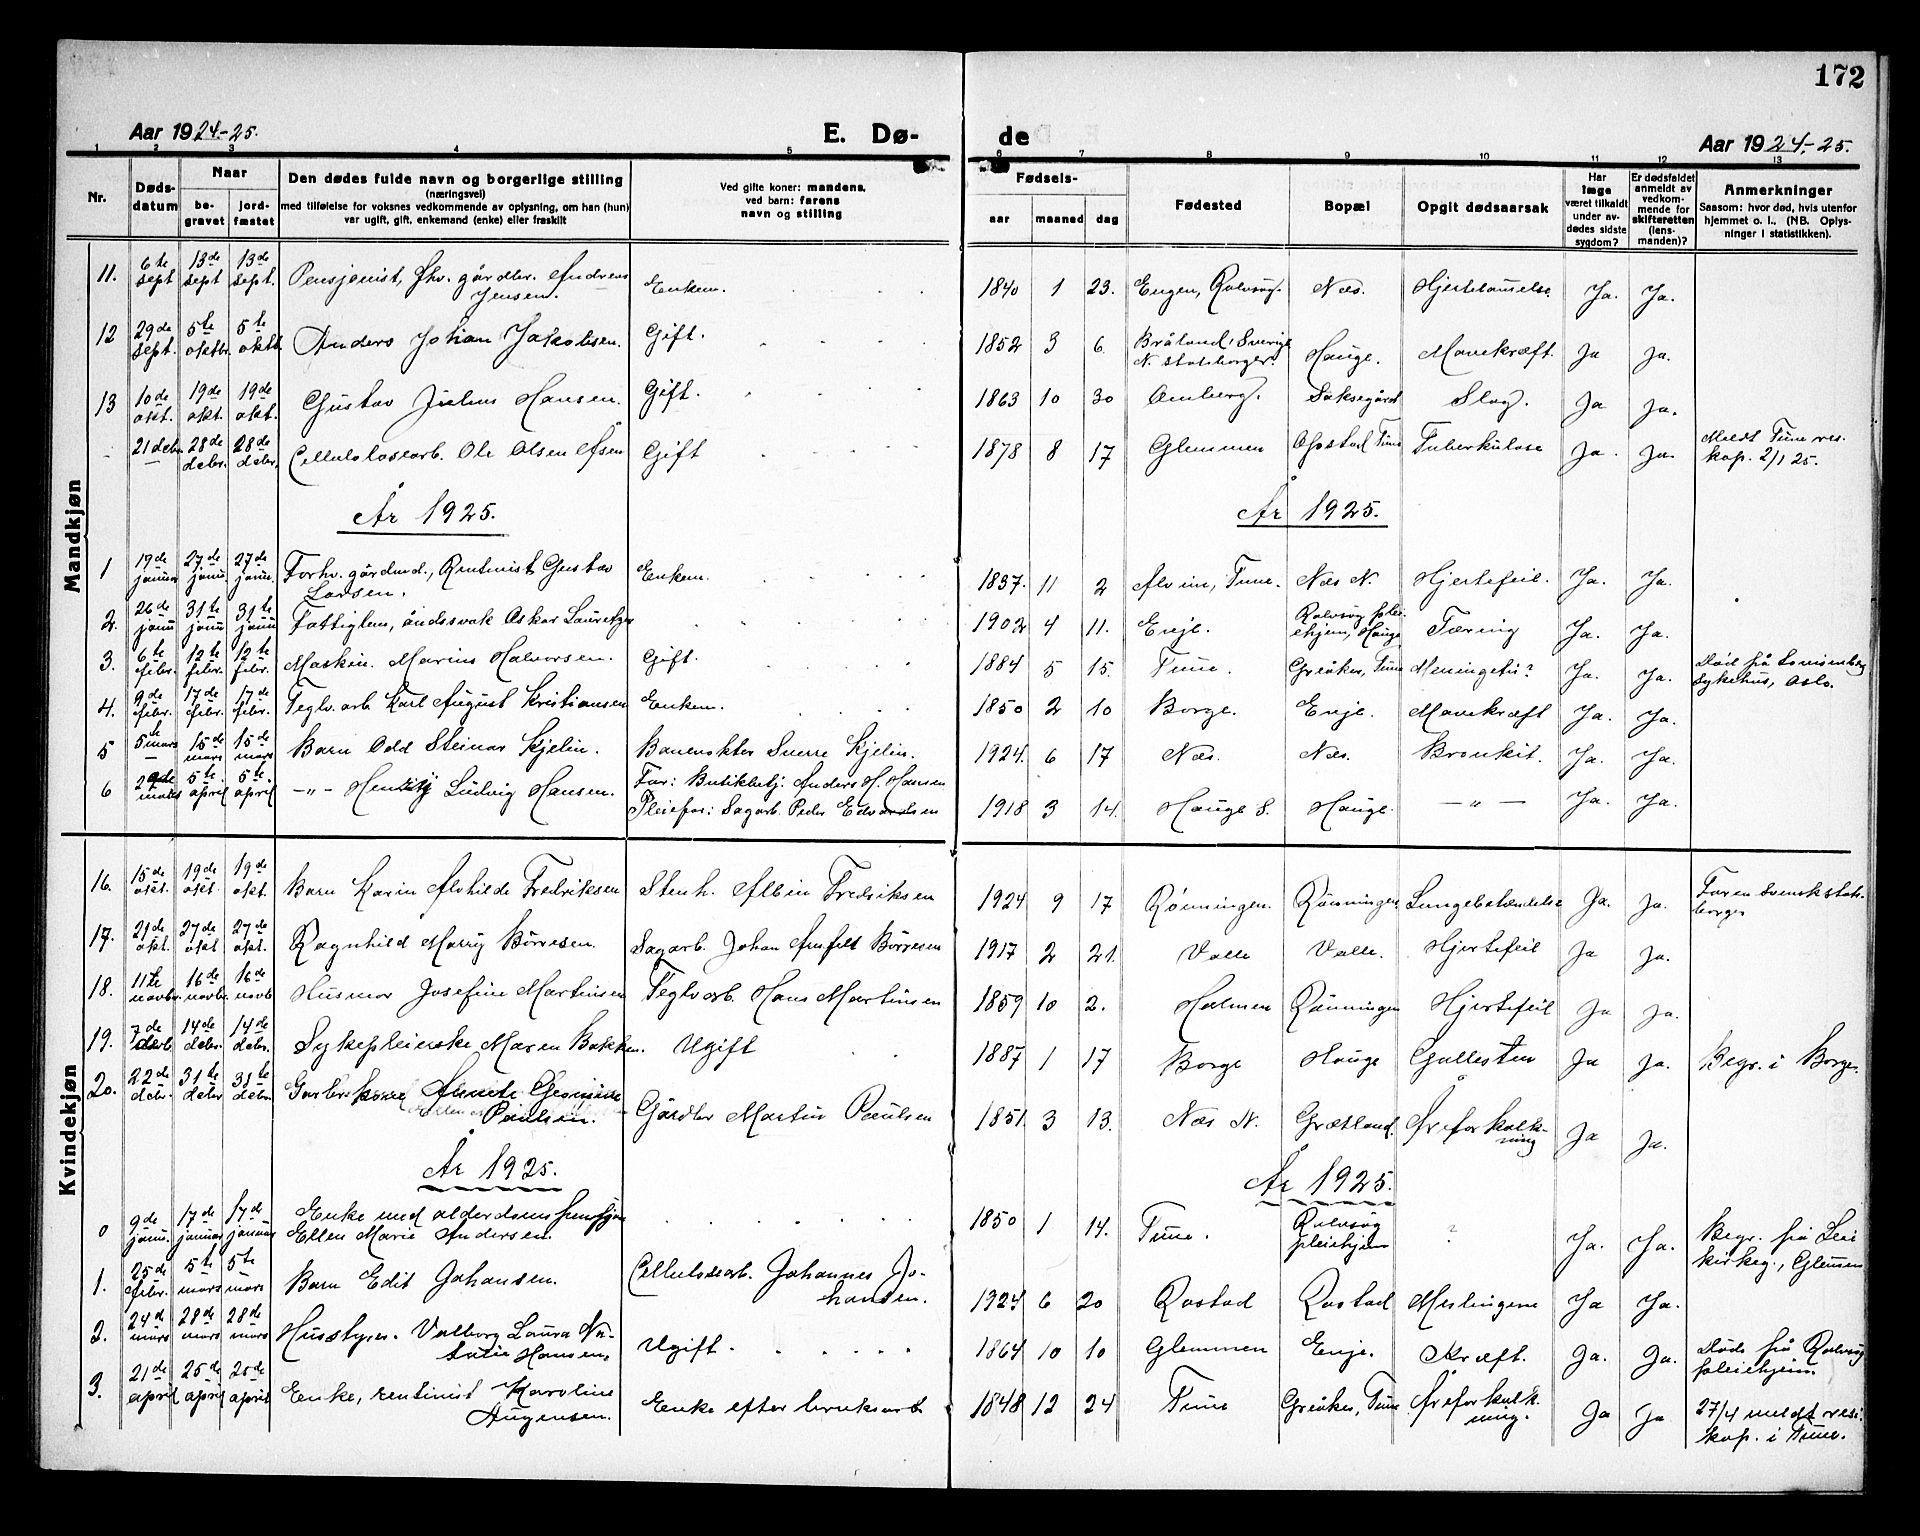 172
Aar 1924-25.
E. Dø-
de
Aar 1924-25.
1 2 3 4 5 6 7 8 9 10 11 12 13
Nr.
Døds-
datum
Naar
be-
gravet
jord-
fæstet
Den dødes fulde navn og borgerlige stilling
(næringsvei)
med tilføielse for voksnes vedkommende av oplysning, om han (hun)
var ugift, gift, enkemand (enke) eller fraskilt
Ved gifte koner: mandens,
ved barn: farens
navn og stilling
Fødsels-
aar maaned dag
Fødested
Bopæl
Opgit dødsaarsak
Har
læge
været tilkaldt
under av-
dødes sidste
sygdom?
Er dødsfaldet
anmeldt av
vedkom-
mende for
skifteretten
(lens-
manden)?
Anmerkninger
Saasom: hvor død, hvis utenfor
hjemmet o. l., (NB. Oplys-
ninger i statistikken).
Mandkjøn
11. 6te sept 13de sept 13de sept. Pensjonist, fhv. gårdbr. Andreas
Jensen. Enkem. 1840 1 23. Engen, Rolvsøy. Næs. Hjertelammelse. Ja. Ja.
12 29de sept. 5te oktbr. 5te oktb Anders Johan Jakobsen. Gift. 1852 3 6. Bråland, Sverige
N. statsborger. Hauge. Mavekræft. Ja Ja.
13 10de okt. 19de okt. 19de okt. Gustav Julius Hansen. Gift. 1863 10 30 Omberg. Saksegård Slag. Ja Ja.
21 debr 28de debr. 28de debr. Cellulosearb. Ole Olsen Åsen Gift 1878 8 17 Glemmen Opstad Tune Tuberkulose Ja. Ja. Meldt Tune res.
kap. 2/1 25.
År 1925. År 1925.
1 19de januar 27de janu. 27de janu. Forhv. gårdmd., Rentenist Gustav
Larsen. Enkem. 1837. 11 2 Alvim, Tune. Næs N. Hjertefeil. Ja. Ja.
2. 26de janu 31te janu 31te janu Fattiglem, åndsvak Oskar Lauritzen 1902 4 11. Enje. Rolvsøy plei-
ehjem, Hauge Tæring Ja. Ja.
3. 6te febr. 12te febr. 12te febr. Maskin. Marius Halvorsen. Gift. 1884 5 15. Tune. Greåker, Tune Meningeti? Ja. Ja. Død på Lovisenberg
Sykehus, Oslo.
4. 9de febr. 17de febr. 17de febr. Teglv. arb Karl August Kristiansen Enkem. 1850 2 10 Borge. Enje. Mavekræft Ja. Ja.
5 5te mars 15de mars 15de mars Barn Odd Steinar Kjelin. Banevokter Sverre Kjelin. 1924. 6 17 Næs. Næs. Bronkit. Ja. Ja.
6 29de mars 5te april 5te april —"— Henry Ludvig Hansen. Far: Butikbetj. Anders H. Hansen
Pleiefar: Sagarb. Peder Edvardsen 1918 3 14. Hauge S. Hauge. —"— Ja. Ja.
Kvindekjøn
16. 15de okt. 19de okt. 19de okt. Barn Karin Alvhilde Fredriksen Stenh. Albin Fredriksen 1924 9 17 Rønningen. Rønningen Lungebetændelse Ja. Ja. Far en svensk stats-
borger
17. 21de okt. 27de okt 27de okt. Ragnhild Marry Børresen. Sagarb. Johan Arnfelt Børresen 1917 2 21. Valle Valle. Hjertefeil Ja Ja.
18. 11te novbr. 16de novbr. 16de novb Husmor Josefine Martinsen Teglv. arb. Hans Martinsen 1859 10 2. Holmen Rønningen Hjertefeil Ja Ja.
19. 7de 14de debr. 14de debr. Sykepleierske Maren Bakken. Ugift 1887 1 17 Borge Hauge Gallesten Ja Ja. Begr. i Borge.
20. 22de debr. 31te debr 31te debr. Gårdbr. kone
Paulsen. Gårdbr Martin Paulsen 1851. 3 13. Næs N. Grætland. Åreforkalk-
ning Ja Ja.
År 1925. År 1925.
0 9de janu. 17de januar 17de januar Enke med alderdoms
Ellen Marie Andersen. 1850 1 14. Tune. Rolvsøy
pleiehjem ? Ja. Ja. Begr. på Leie
kirkeg., Glemmen
1. 25de febr. 5te mars 5te mars Barn Edit Johansen. Cellulosearb. Johannes Jo-
hansen. 1924 6 20 Rostad Rostad Meslingene Ja Ja.
2. 24d mars 28de mars 28de mars Husstyrer. Valborg Laura Na-
talie Hansen. Ugift. 1864 10 10 Glemmen Enje. Kræft. Ja. Ja. Døde på Rolvsøy
pleiehjem.
3. 21de april 25de april 25de april Enke, rentenist Karoline
Aagensen. Enke efter bruksarb. 1848 12 24 Tune Greåker, Tune Åreforkalk-
ning. Ja Ja 27/4 meldt resi.
kap. i Tune.